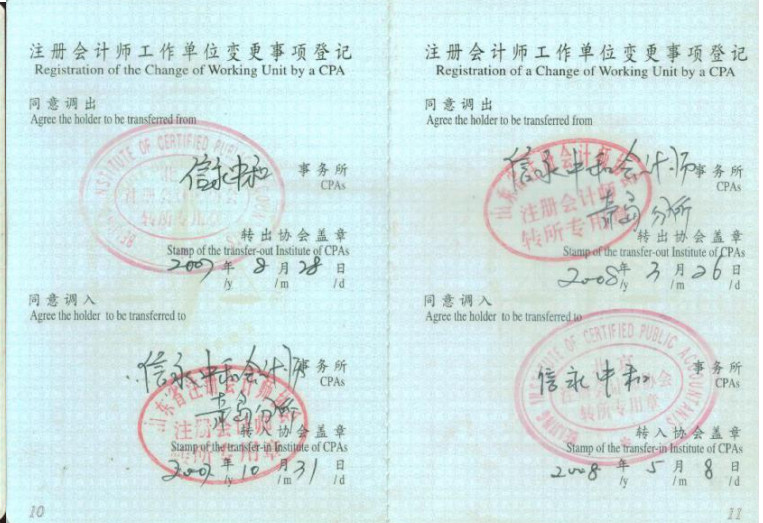 注册会计师工作单位变更事项登记
Registration of the Change of Working Unit by a CPA
同意调出
Agree the holder to be transferred from
信永中和
事务所
CPAs
转出协会盖章
Stamp of the transfer-out Institute of CPAs
2007年8月28日
/y /m /d
同意调入
Agree the holder to be transferred to
信永中和会计师事务所
CPAs
青岛分所
转入协会盖章
Stamp of the transfer-in Institute of CPAs
2007年10月31日
/y /m /d
山东省注册会计师协会
注册会计师
转所专用章
10
注册会计师工作单位变更事项登记
Registration of a Change of Working Unit by a CPA
同意调出
Agree the holder to be transferred from
信永中和会计师事务所
CPAs
青岛分所
转出协会盖章
Stamp of the transfer-out Institute of CPAs
2008年3月26日
/y /m /d
注册会计师
转所专用章
同意调入
Agree the holder to be transferred to
信永中和
事务所
CPAs
BEIJING INSTITUTE OF CERTIFIED PUBLIC ACCOUNTANTS
转所专用章
转入协会盖章
Stamp of the transfer-in Institute of CPAs
2008年5月8日
/y /m /d
11